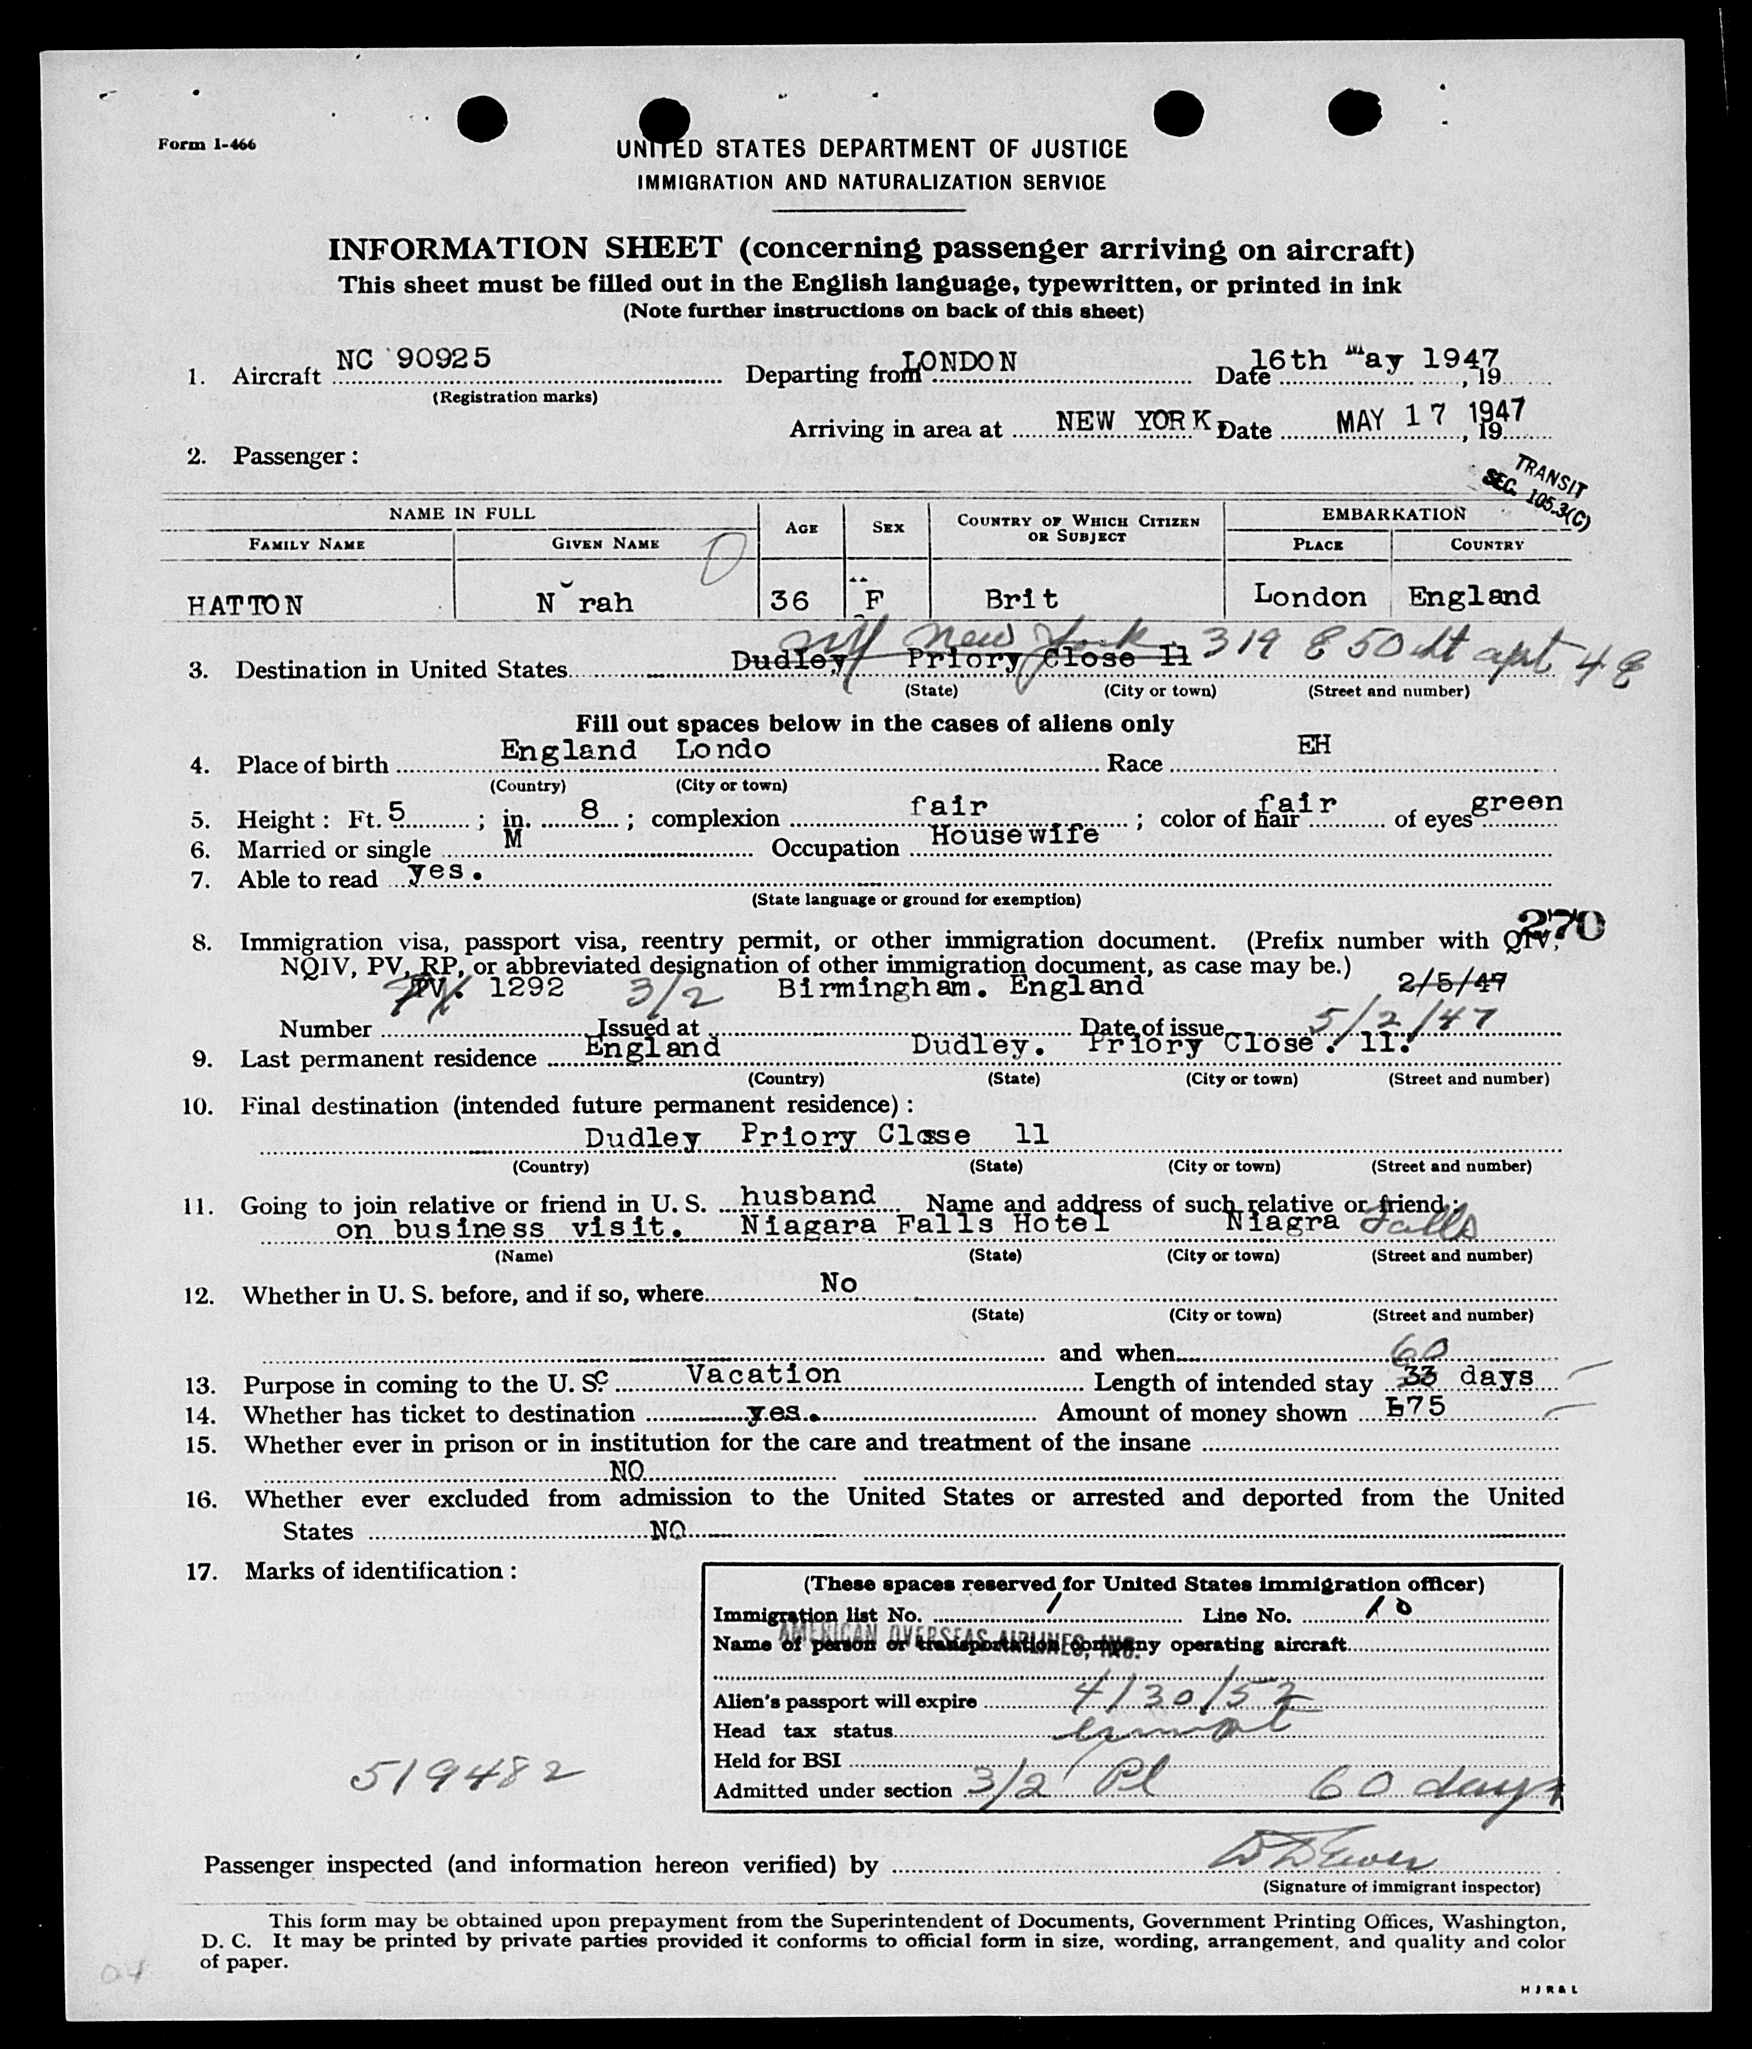 Form I-466
UNITED STATES DEPARTMENT OF JUSTICE
IMMIGRATION AND NATURALIZATION SERVICE
INFORMATION SHEET (concerning passenger arriving on aircraft)
This sheet must be filled out in the English language, typewritten, or printed in ink
(Note further instructions on back of this sheet)
1. Aircraft NC 90925 Departing from LONDON Date 16th May 1947, 19
(Registration marks)
Arriving in area at NEW YORK, Date MAY 17 1947, 19
2. Passenger:
TRANSIT
SEC. 105.3(C)
NAME IN FULL AGE SEX COUNTRY OF WHICH CITIZEN OR SUBJECT EMBARKATION
FAMILY NAME GIVEN NAME PLACE COUNTRY
HATTON N rah 36 F Brit London England
NY New York 319 E 50 St apt 4 E
3. Destination in United States Dudley Priory Close 11
(State) (City or town) (Street and number)
Fill out spaces below in the cases of aliens only
4. Place of birth England Londo Race EH
(Country) (City or town)
5. Height: Ft. 5; in. 8; complexion fair; color of hair fair of eyes green
6. Married or single M Occupation Housewife
7. Able to read yes.
(State language or ground for exemption)
270
8. Immigration visa, passport visa, reentry permit, or other immigration document. (Prefix number with QIV,
NQIV, PV, RP, or abbreviated designation of other immigration document, as case may be.)
PV. 1292 3/2 Birmingham. England 2/5/47
Number Issued at Date of issue 5/2/47
9. Last permanent residence England Dudley. Priory Close. 11.
(Country) (State) (City or town) (Street and number)
10. Final destination (intended future permanent residence):
Dudley Priory Close 11
(Country) (State) (City or town) (Street and number)
11. Going to join relative or friend in U. S. husband Name and address of such relative or friend:
on business visit. Niagara Falls Hotel Niagra Falls
(Name) (State) (City or town) (Street and number)
12. Whether in U. S. before, and if so, where No
(State) (City or town) (Street and number)
and when
60
13. Purpose in coming to the U. S. Vacation Length of intended stay 33 days
14. Whether has ticket to destination yes. Amount of money shown £75
15. Whether ever in prison or in institution for the care and treatment of the insane
NO
16. Whether ever excluded from admission to the United States or arrested and deported from the United
States NO
17. Marks of identification:
(These spaces reserved for United States immigration officer)
Immigration list No. 1 Line No. 10
Name of person or transportation company operating aircraft
AMERICAN OVERSEAS AIRLINES, INC.
Alien's passport will expire 4/30/52
Head tax status exempt
Held for BSI
Admitted under section 3/2 Pl 60 days
519482
Passenger inspected (and information hereon verified) by
(Signature of immigrant inspector)
This form may be obtained upon prepayment from the Superintendent of Documents, Government Printing Offices, Washington,
D. C. It may be printed by private parties provided it conforms to official form in size, wording, arrangement, and quality and color
of paper.
H J R & L